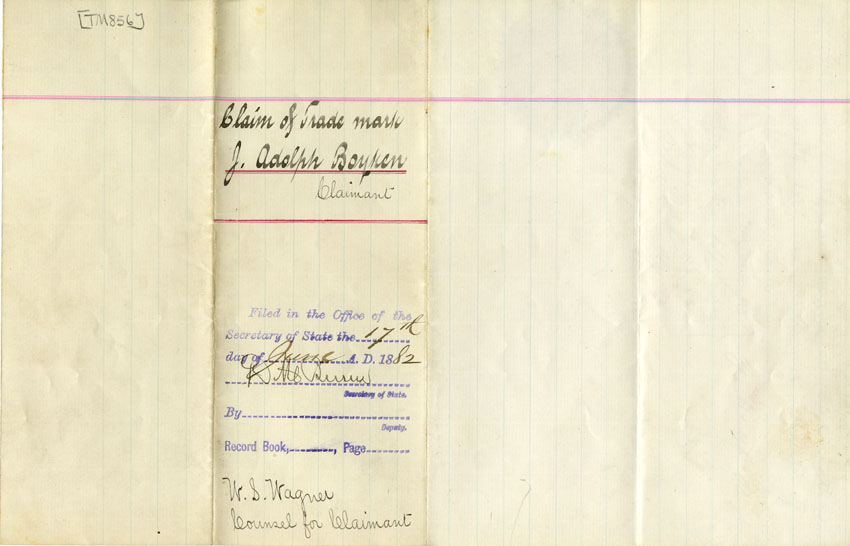 [TM856]
Claim of Trade mark
J. Adolph Boyken
Claimant
Filed in the Office of the
Secretary of State the 17th
day of June A. D. 1882
Secretary of State.
By
Deputy.
Record Book, , Page
W. S. Wagner
Counsel for Claimant